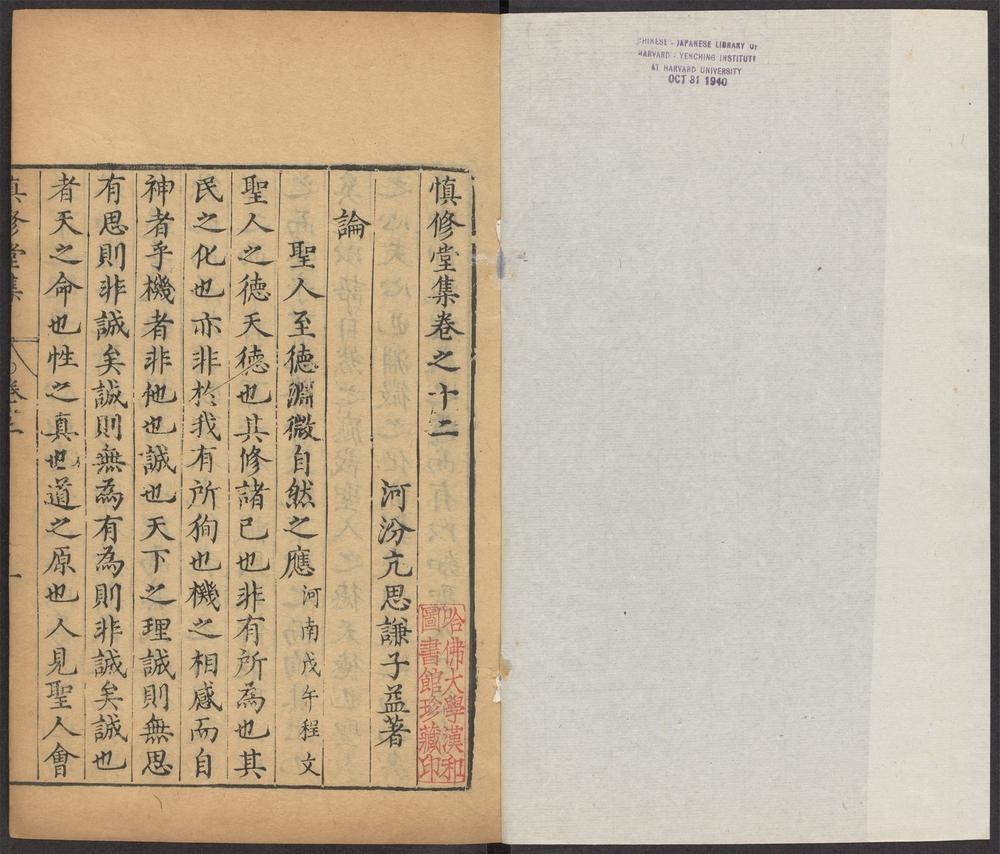 CHINESE - JAPANESE LIBRARY OF
HARVARD - YENCHING INSTITUTE
AT HARVARD UNIVERSITY
OCT 31 1940
慎修堂集卷之十二
河汾亢思謙子益著
論
聖人至德淵微自然之應 河南戊午程文
聖人之德天德也其修諸己也非有所為也其
民之化也亦非於我有所狥也機之相感而自
神者乎機者非他也誠也天下之理誠則無思
有思則非誠矣誠則無為有為則非誠矣誠也
者天之命也性之真也道之原也人見聖人會
慎修堂集 卷十二 一
哈佛大學漢和
圖書館珍藏印